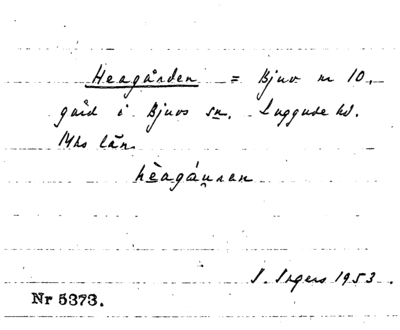 Heagården = Bjuv nr 10,
gård i Bjuvs sn. Luggude hd.
Mhs län
hèagáu̯nan
S. Ingers 1953.
Nr 5373.